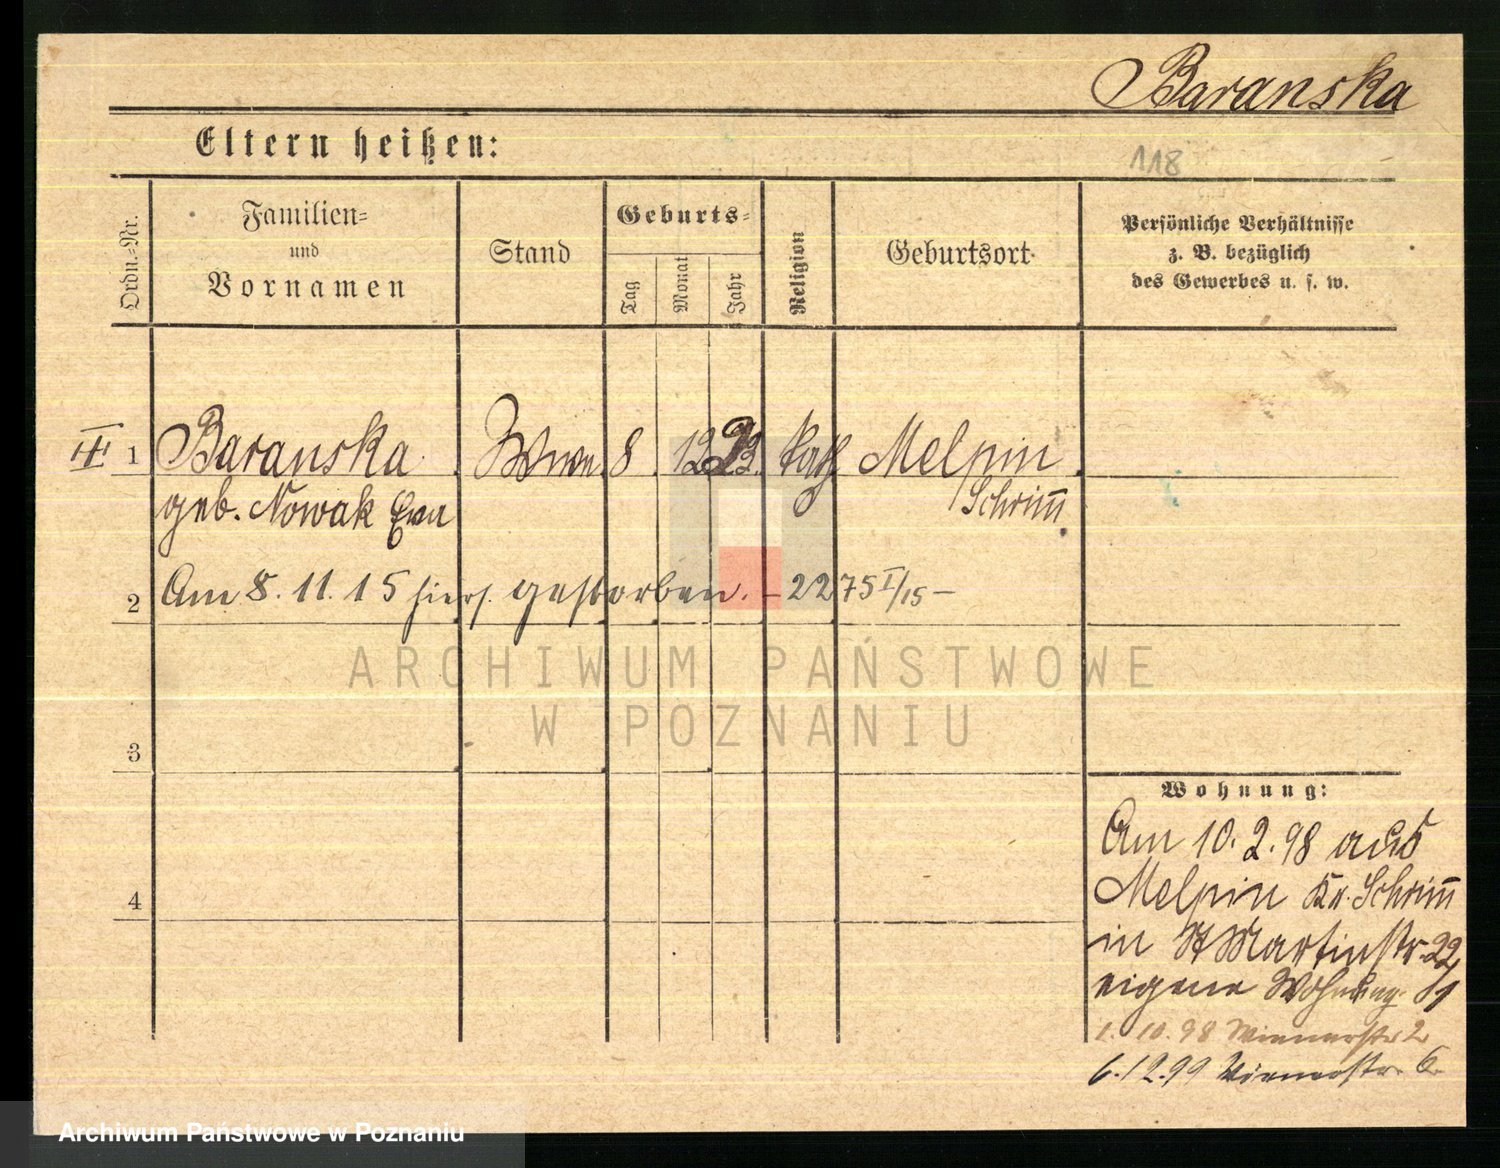 Baranska
Eltern heißen:
118
Ordn.-Nr.
Familien=
und
Vornamen
Stand
Geburts=
Tag
Monat
Jahr
Religion
Geburtsort
Persönliche Verhältnisse
z. B. bezüglich
des Gewerbes u. s. w.
III 1 Baranska Wwe. 8 12 kath Melpin
geb. Nowak Eva Schrim̅
2 Am 8. 11. 15 hiers. gestorben. – 2275 I/15 –
ARCHIWUM PAŃSTWOWE
W POZNANIU
3
Wohnung:
Am 10. 2. 98 aus
4 Melpin Kr. Schrim̅
in St Martinstr. 22
eigene Wohnung.
1. 10. 98 Wienerstr 2
6.12.99 Wienerstr. 6
Archiwum Państwowe w Poznaniu